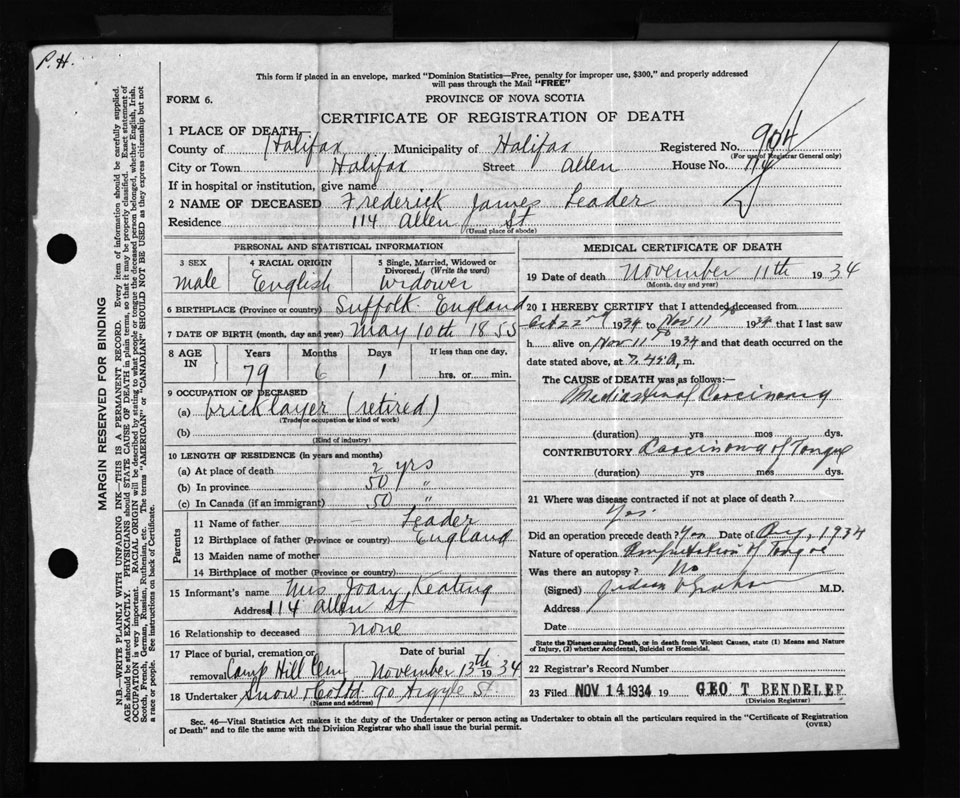 P.H.
This form if placed in an envelope, marked "Dominion Statistics—Free, penalty for improper use, $300," and properly addressed
will pass through the Mail "FREE"
FORM 6.
PROVINCE OF NOVA SCOTIA
CERTIFICATE OF REGISTRATION OF DEATH
1 PLACE OF DEATH,
County of Halifax Municipality of Halifax Registered No. 904
(For use of Registrar General only)
City or Town Halifax Street Allen House No. 114
If in hospital or institution, give name
2 NAME OF DECEASED Frederick James Leader
Residence 114 Allen St
(Usual place of abode)
PERSONAL AND STATISTICAL INFORMATION
3 SEX 4 RACIAL ORIGIN 5 Single, Married, Widowed or
Divorced. (Write the word)
male English Widower
6 BIRTHPLACE (Province or country) Suffolk England
7 DATE OF BIRTH (month, day and year) May 10th 1855
8 AGE IN Years Months Days If less than one day,
79 6 1 hrs. or min.
9 OCCUPATION OF DECEASED
(a) bricklayer (retired)
(Trade or occupation or kind of work)
(b)
(Kind of industry)
10 LENGTH OF RESIDENCE (in years and months)
(a) At place of death 2 yrs
(b) In province 50 "
(c) In Canada (if an immigrant) 50 "
Parents
11 Name of father — Leader
12 Birthplace of father (Province or country) England
13 Maiden name of mother
14 Birthplace of mother (Province or country)
15 Informant's name Mrs Joan Keating
Address 114 Allen St
16 Relationship to deceased none
17 Place of burial, cremation or Date of burial
removal Camp Hill Cem November 13th 1934
18 Undertaker Snow & Co Ltd 90 Argyle St.
(Name and address)
MEDICAL CERTIFICATE OF DEATH
19 Date of death November 11th 1934
(Month, day and year)
20 I HEREBY CERTIFY that I attended deceased from
Oct 22nd 1934 to Nov 11th 1934 that I last saw
h alive on Nov 11th 1934 and that death occurred on the
date stated above, at 7.45 A, m.
The CAUSE of DEATH was as follows:—
Mediastinal Carcinoma
(duration) yrs mos dys.
CONTRIBUTORY Carcinoma of Tongue
(duration) yrs mos dys.
21 Where was disease contracted if not at place of death?
Yes.
Did an operation precede death? Yes Date of Aug, 1934
Nature of operation Amputation of Tongue
Was there an autopsy? No
(Signed) Judson Graham M.D.
Address
Date
State the Disease causing Death, or in death from Violent Causes, state (1) Means and Nature
of Injury, (2) whether Accidental, Suicidal or Homicidal.
22 Registrar's Record Number
23 Filed NOV 14 1934 19 GEO T BENDELER
(Division Registrar)
Sec. 46—Vital Statistics Act makes it the duty of the Undertaker or person acting as Undertaker to obtain all the particulars required in the "Certificate of Registration
of Death" and to file the same with the Division Registrar who shall issue the burial permit.
(OVER)
MARGIN RESERVED FOR BINDING
N.B.—WRITE PLAINLY WITH UNFADING INK—THIS IS A PERMANENT RECORD. Every item of information should be carefully supplied.
AGE should be stated EXACTLY. PHYSICIANS should STATE CAUSE OF DEATH in plain terms, so that it may be properly classified. Exact statement of
OCCUPATION is very important. RACIAL ORIGIN will be described by stating to what people or tongue the deceased person belonged, whether English, Irish,
Scotch, French, German, Russian, Ruthenian, etc. The terms "AMERICAN" or "CANADIAN" SHOULD NOT BE USED as they express citizenship but not
a race or people. See instructions on back of Certificate.